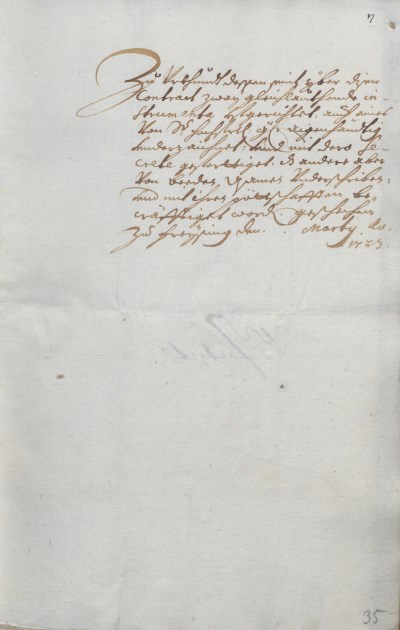 7
Zu Urkhundt dessen seint yber disen
Contract zway gleichlauthende in-
strumenta aufgerichtet, auch aines
von Sr hochfrtl. gd: aigenhändtig
underzaichnet, und mit dero Se-
crete gefertiget, dz andere aber
von beeden underschriben,
und mit ihren pöttschafften be-
cräfftiget word. geschehen
zu Freysing den. . Marty Ao.
1723.
35